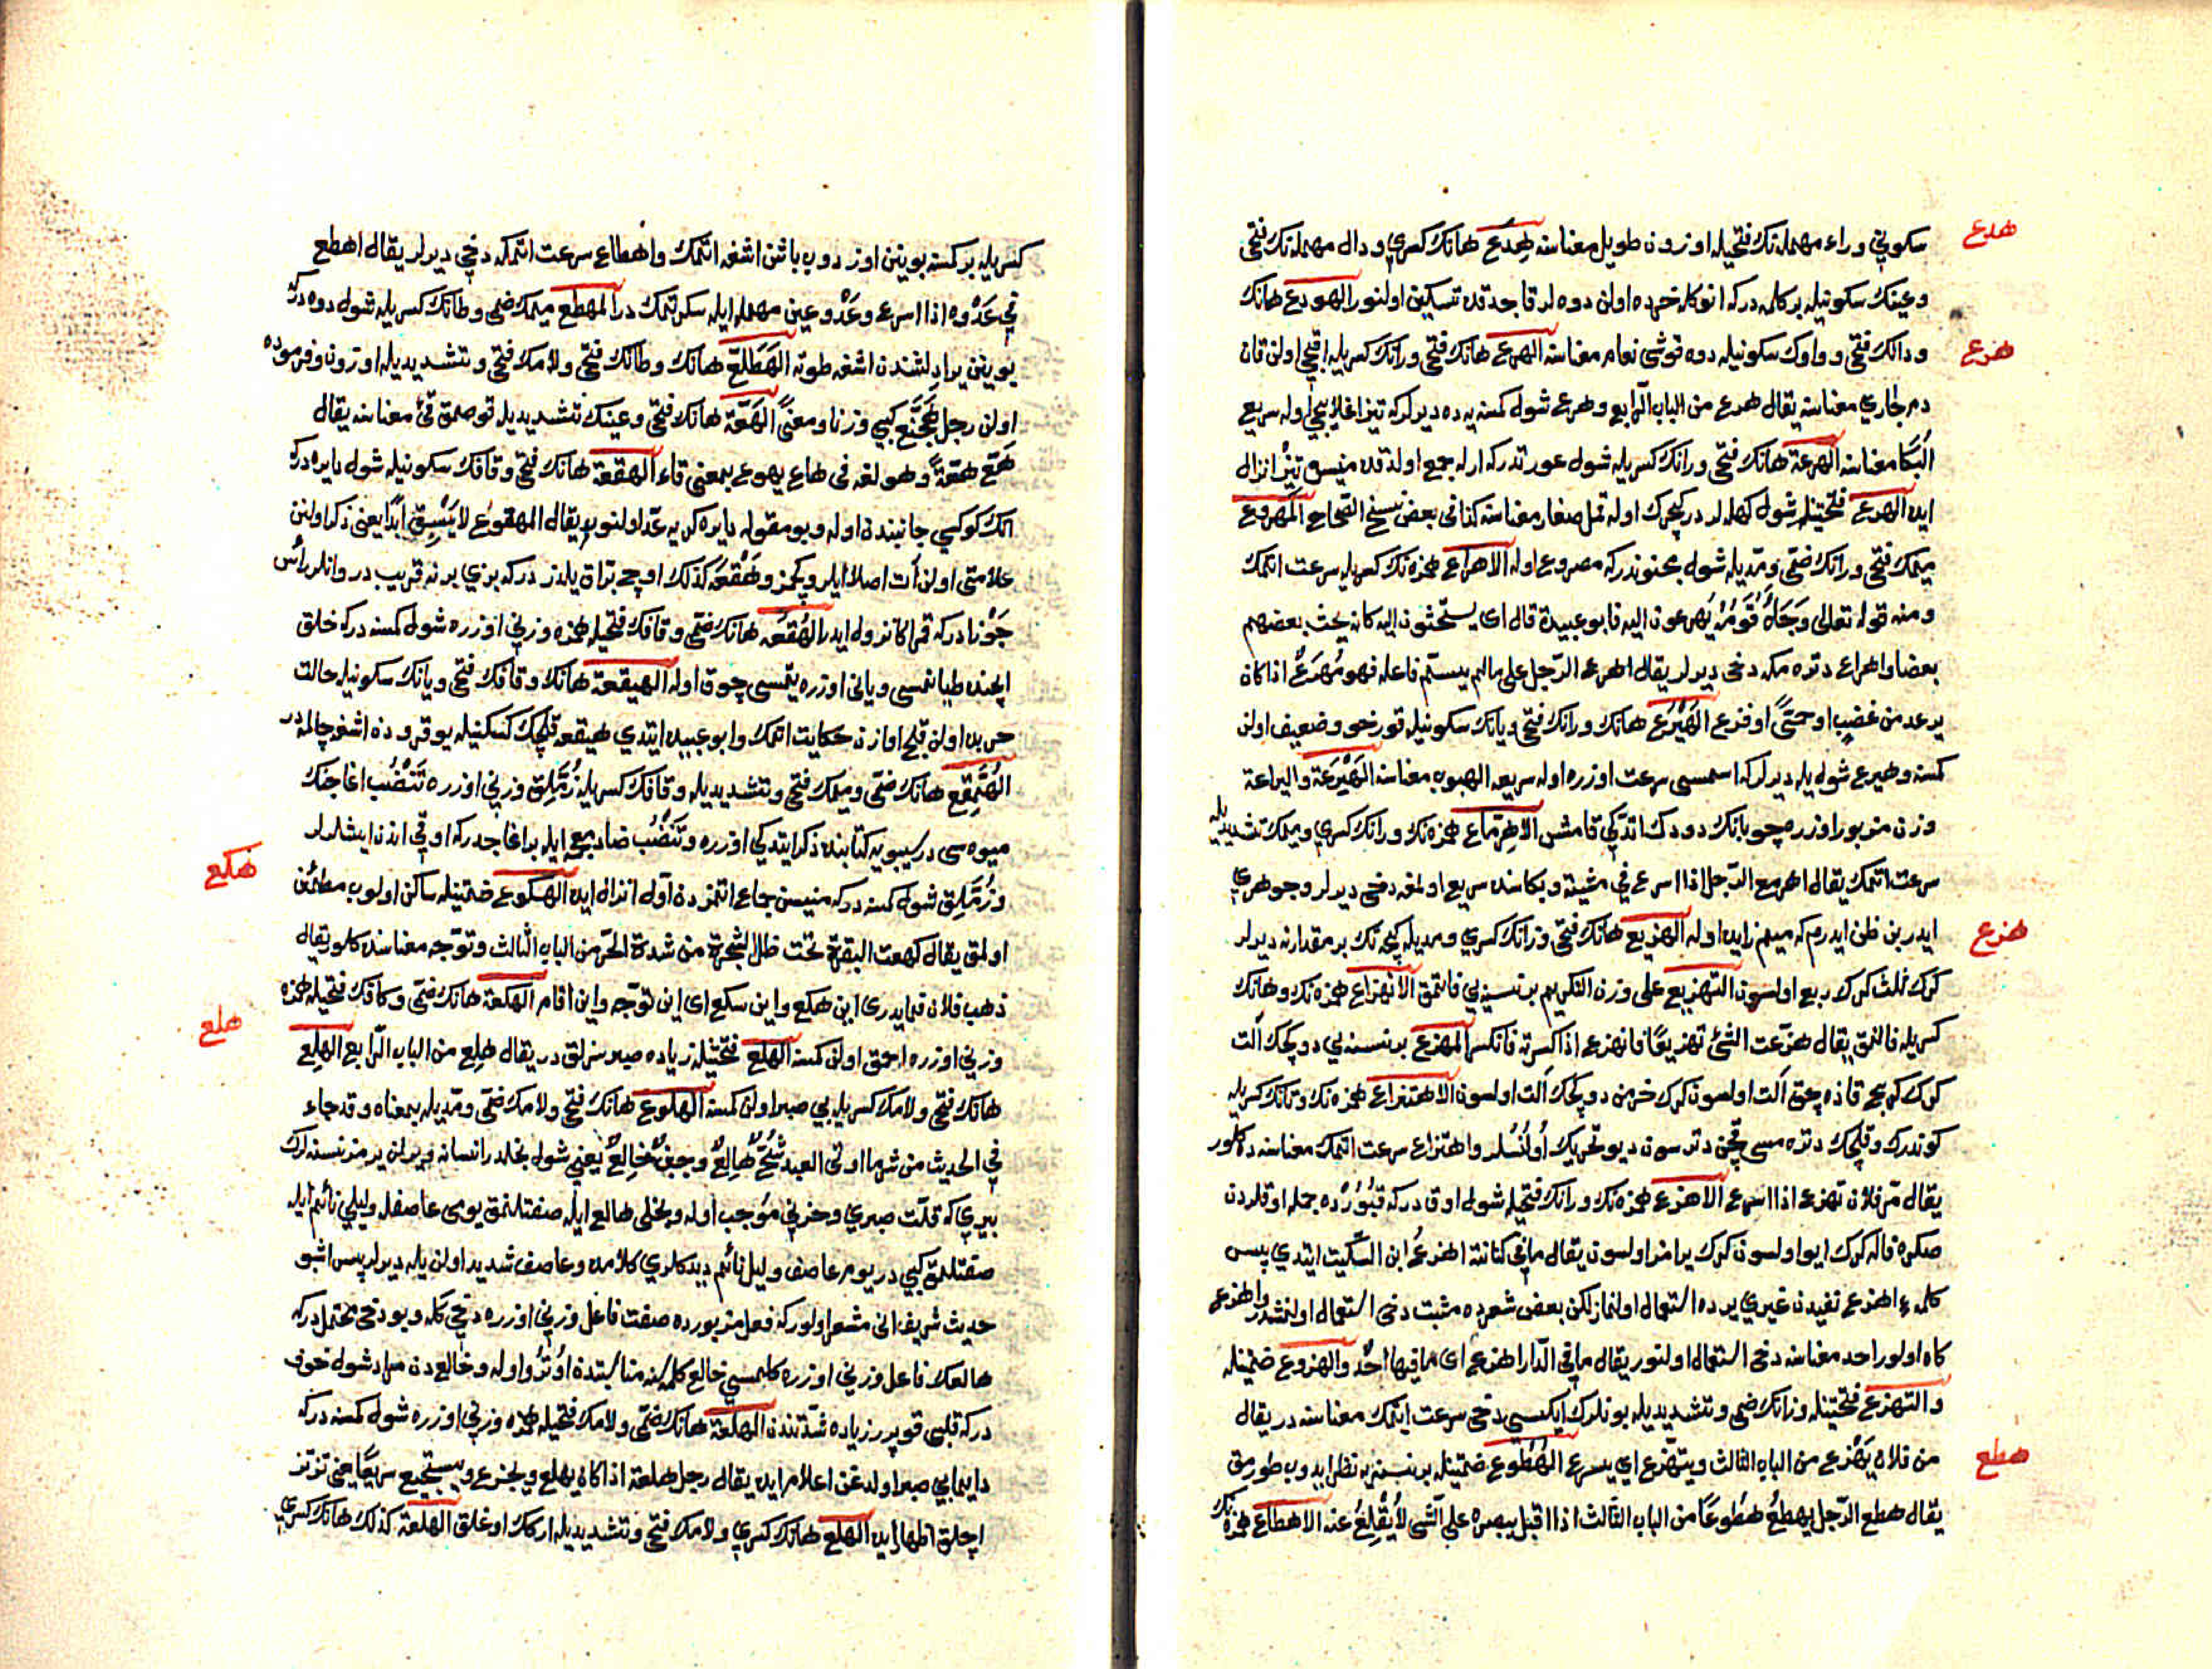 هدع
سكونى وراء مهمله نك فتحيله اوزون طويل معناسنه هِدَع هانك كسرى ودال مهمله نك فتحى
وعينك سكونيله بر كلمه دركه انوكله خرده اولن دوه لر قاچدقده تسكين اولنور الهودع هانك
هرع
ودالك فتحى وواوك سكونيله دوه قوشى نعام معناسنه الهرع هانك فتحى ورانك كسريله اقيجى اولن قان
دم جارى معناسنه يقال هرع من الباب الرابع وهرع شول كمسنه يه ده ديرلركه تيز اغلاييجى اوله سريع
البكا معناسنه الهرعة هانك فتحى ورانك كسريله شول عورتدركه ار له جمع اولدقده منيسى تيز انزال
ايده الهرع فتحتينله شول كهله لر در كيچرك اوله قمل صغار معناسنه كذا فى بعض نسخ الصحاح المهروع
ميمك فتحى ورانك ضمى ومديله شول مجنوندركه مصروع اوله الاهراع همزه نك كسريله سرعت اتمك
ومنه قوله تعالى وَجَاءَهُ قَوْمُهُ يُهرعون اليه قا ابوعبيدة قال اى يستحثون اليه كانه يحث بعضهم
بعضا واهراع دتره مكه دخى ديرلر يقال اهرع الرجل على مالم يسم فاعله فهو مُهرَعٌ اذا كان
يرعد من غضب او حمىً او فزع الهَيْرَع هانك ورانك فتحى ويانك سكونيله قورخو وضعيف اولن
كمسنه وهيرع شول يله ديرلركه اسمسى سرعت اوزره اوله سريعه الهبوب معناسنه الهَيْرَعَة واليراعة
وزن مزبور اوزره چوبانك دودك اتدكى قامش الاهرماع همزه نك ورانك كسرى وميمك تشديديله
سرعت اتمك يقال اهرمع الرجل اذا اسرع فى مشيته وبكاسنده سريع اولمغه دخى ديرلر وجوهرى
هزع
ايدر بن ظن ايدرم كه ميم زايده اوله الهزيع هانك فتحى وزانك كسرى ومديله كيجه نك بر مقدارنه ديرلر
كرك ثلث كرك ربع اولسون التهزيع على وزن التكريم بر نسنه يى قاتمق الانهزاع همزه نك وهانك
كسريله قالنمق يقال هزعت الشئ تهزيعًا فانهزع اذا كسرته فانكسر المهزع بر نسنه يى دوكچك الت
كوندرك وقلچك دتره مسى
يقال مر فلان تهزع اذا اسرع الاهزع همزه نك وزانك فتحيله شول اوق دركه قبورده جمله اوقلردن
صكره قاله كرك ايو اولسون كرك يرامز اولسون يقال مافى كنانته اهزع ابن السكيت ايتدى پس
كلمه ء اهزع نفيدن غيرى يرده استعمال اولنماز لكن بعض شعرده مثبت دخى استعمال اولنمشدر واهزع
كاه اولور احد معناسنه دخى استعمال اولنور يقال مافى الدار اهزع اى مافيها احدٌ والهزوع ضمتينله
والتهزع فتحتينله وزانك ضمى وتشديديله بونلرك ايكيسى دخى سرعت ايتمك معناسنه در يقال
هطع
من فلان يَهْزع من الباب الثالث ويتهزع اى يسرع الهُطُوع ضمتينله بر نسنه يه نظر ايدوب طورمق
يقال هطع الرجل يهطع هُطُوعًا من الباب الثالث اذا اقبل ببصره على الشى لا يُقْلِعُ عنه الاهطاع همزه نك
كسريله بر كمسنه بوينن اوزدوب باشن اشغه اتمك واهطاع سرعت اتمكه دخى ديرلر يقال اهطع
فى عَدْوه اذا اسرع وعَدْو عين مهمله ايله سكرتمك در المهطع ميمك ضمى وطانك كسريله شول دوه دركه
بوينن يرادلشندن اشغه طوته الهَطَلَّع هانك وطانك فتحى ولامك فتحى وتشديديله اوزون وفرموده
اولن رجل هَجَنَّع كبى وزنا ومعنىً الهَعَّة هانك فتحى وعينك تشديديله قوصمق قئ معناسنه يقال
هَعَّ هَعَّةً وهو لغه فى هاع يهوع بمعنى قاء الهقعة هانك فتحى وقافك سكونيله شول دايره دركه
اتك كوكسى جانبنده اوله وبو مقوله دايره كريه عد اولنور يقال المهقوع لا يَسْبِق ابدًا يعنى ذكر اولنن
علامتى اولن ات اصلا ايلرو كچمز وهَقْعَه كذلك اوچ براق يلدز دركه بربرينه قريب در وانلر رأس
جَوْزا دركه قمر اكا نزول ايدر الهُقَعَه هانك ضمى وقافك فتحيله همزه وزنى اوزره شول كمسنه دركه خلق
ايچنده طيانمسى ويانى اوزره يتمسى چوق اوله الهيقعة هانك وقافك فتحى ويانك سكونيله حالت
حربده اولن قلج اوازن حكايت اتمك وابوعبيده ايتدى هيقعه قلچك كسكينيله يوقرودن اشغه چالمه در
الهُمَّقِع هانك ضمى وميمك فتحى وتشديديله وقافك كسريله زُمَّلِق وزنى اوزره تَنْضُب اغاجنك
ميوه سى در سيبويه كتابنده ذكر ايتدكى اوزره وتَنْضُب ضاد معجمه ايله بر اغاجدركه اوقى اندن ايشلرلر
هكع
وزُمَّلِق شول كمسنه دركه منيسن جماع اتمزدن اول انزال ايده الهكوع ضمتينله ساكن اولوب مطئن
اولمق يقال كهعت البقرة تحت ظل الشجرة من شدة الحر من الباب الثالث وتوجه معناسنده كلور يقال
ذهب فلان فما يدرى اين هكع واين سكع اى اين توجه واين اقام الهكعة هانك ضمى وكافك فتحيله همزه
هلع
وزنى اوزره احمق اولن كمسنه الهلع فتحتينله زياده صبرسزلق در يقال هلِع من الباب الرابع الهلِع
هانك فتحى ولامك كسريله بى صبر اولن كمسنه الهلوع هانك فتحى ولامك ضمى ومديله بمعناه وقد جاء
فى الحديث من شر ما اوتى العبد شُحٌّ هالِعٌ وجبنٌ خالِعٌ يعنى شول بخلدر انسانه ويريلن يرمز نسنه لرك
بيرى كه قلت صبرى وحزنى موجب اوله وبخلى هالع ايله صفتلنمق يومى عاصفله وليلى نائم ايله
صفتلنمق كبى در يوم عاصف وليل نائم ديد كلرى كلامده وعاصف شديد اولن يله ديرلر پس اشبو
حديث شريف انى مشعر اولوركه فعل مزبورده صفت فاعل وزنى اوزره دخى كله وبو دخى محتمل دركه
هالعك فاعل وزنى اوزره كلمسى خالع كلمه سنه مناسبتدن اوترو اوله وخالع دن مراد شول خوف
دركه قلبى قوپرر زياده شدتندن الهلعة هانك ضمى ولامك فتحيله همزه وزنى اوزره شول كمسنه دركه
دايما بى صبر اولدغن اعلام ايده يقال رجل هلعة اذا كان يهلع ويجزع ويستجيع سريعًا يعنى تز تز
اچلق اظهار ايده الهلع هانك كسرى ولامك فتحى وتشديديله اركك اوغلق الهلعة كذلك هانك كسرى